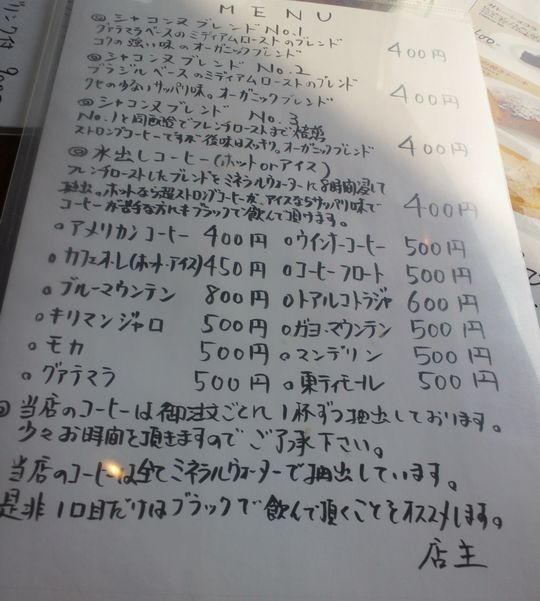 MENU
◎シャコンヌブレンド No.1
グァテマラベースのミディアムローストのブレンド
コクの強い味のオーガニックブレンド 400円
◎シャコンヌブレンド No.2
ブラジルベースのミディアムローストのブレンド
クセの少ないサッパリ味。オーガニックブレンド 400円
◎シャコンヌブレンド No.3
No.1と同配合でフレンチローストまで焙煎
ストロングコーヒーですが後味はスッキリ。オーガニックブレンド 400円
◎水出しコーヒー(ホット or アイス)
フレンチローストしたブレンドをミネラルウォーターに8時間浸して
抽出。ホットなら超ストロングコーヒーが、アイスならサッパリ味で
コーヒーが苦手な方にもブラックで飲んで頂けます。 400円
○アメリカンコーヒー 400円 ○ウインナーコーヒー 500円
○カフェオーレ(ホット・アイス) 450円 ○コーヒーフロート 500円
○ブルーマウンテン 800円 ○トアルコトラジャ 600円
○キリマンジャロ 500円 ○ガヨ・マウンテン 500円
○モカ 500円 ○マンデリン 500円
○グァテマラ 500円 ○東ティモール 500円
◎当店のコーヒーは御注ごとに1杯ずつ抽出しております。
少々お時間を頂きますのでご了承下さい。
当店のコーヒーは全てミネラルウォーターで抽出しています。
是非1口目だけはブラックで飲んで頂くことをオススメします。
店主